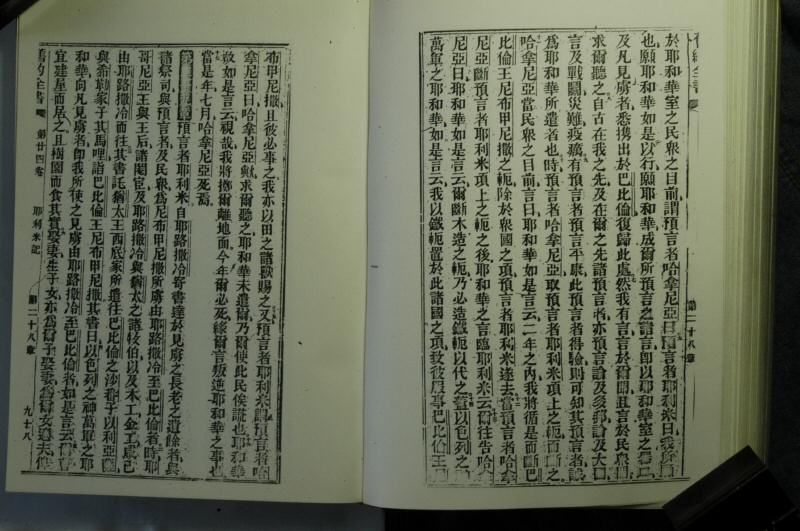 舊約全書
於耶和華室之民衆之目前謂預言者哈拿尼亞曰預言者耶利米曰
也願耶和華如是以行願耶和華成爾所預言之諸言即以耶和華室之
及凡見虜者悉携出於巴比倫復歸此處然我有言言於爾聞且言於民
求爾聽之自古在我之先及在爾之先諸預言者亦預言論及多邦論及大
言及戰鬬災難疫癘有預言者預言平康此預言者得驗則可知其預言者
爲耶和華所遣者也時預言者哈拿尼亞取預言者耶利米項上之軛而斷之
哈拿尼亞當民衆之目前言曰耶和華如是言云二年之內我將循是而斷巴
比倫王尼布甲尼撒之軛除於衆國之項預言者耶利米遂去當預言者哈拿
尼亞斷預言者耶利米項上之軛之後耶和華之言臨耶利米云爾往告哈拿
尼亞曰耶和華如是言云爾斷木造之軛乃必造鐵軛以代之蓋以色列之
萬軍之耶和華如是言云我以鐵軛置於此諸國之項致彼服事巴比倫王
第二十八章
布甲尼撒且彼必事之我亦以田之諸獸賜之又預言者耶利米謂預言者哈
拿尼亞曰哈拿尼亞歟求爾聽之耶和華未遣爾乃爾使此民俟謊也耶和華
故如是言云視哉我將擲爾離地而今年爾必死緣爾言叛逆耶和華之事也
當是年七月哈拿尼亞死焉
預言者耶利米自耶路撒冷寄書達於見虜之長老之遺餘者與
諸祭司與預言者及民衆爲尼布甲尼撒所虜由耶路撒冷至巴比倫者時耶
哥尼亞王與王后諸閹宦及耶路撒冷與猶太之諸牧伯以及木工金工
由耶路撒冷而往其書託猶太王西底家所遣往巴比倫之沙番子以利亞
與希勒家子其馬哩詣巴比倫王尼布甲尼撒其書曰以色列之神萬軍之耶
和華向凡見虜者即我所使之見虜由耶路撒冷至巴比倫者如是言云
宜建屋而居之且樹園而食其實娶妻生子女亦爲爾子娶妻
舊約全書 第廿四卷 耶利米記 第二十八章 九十八